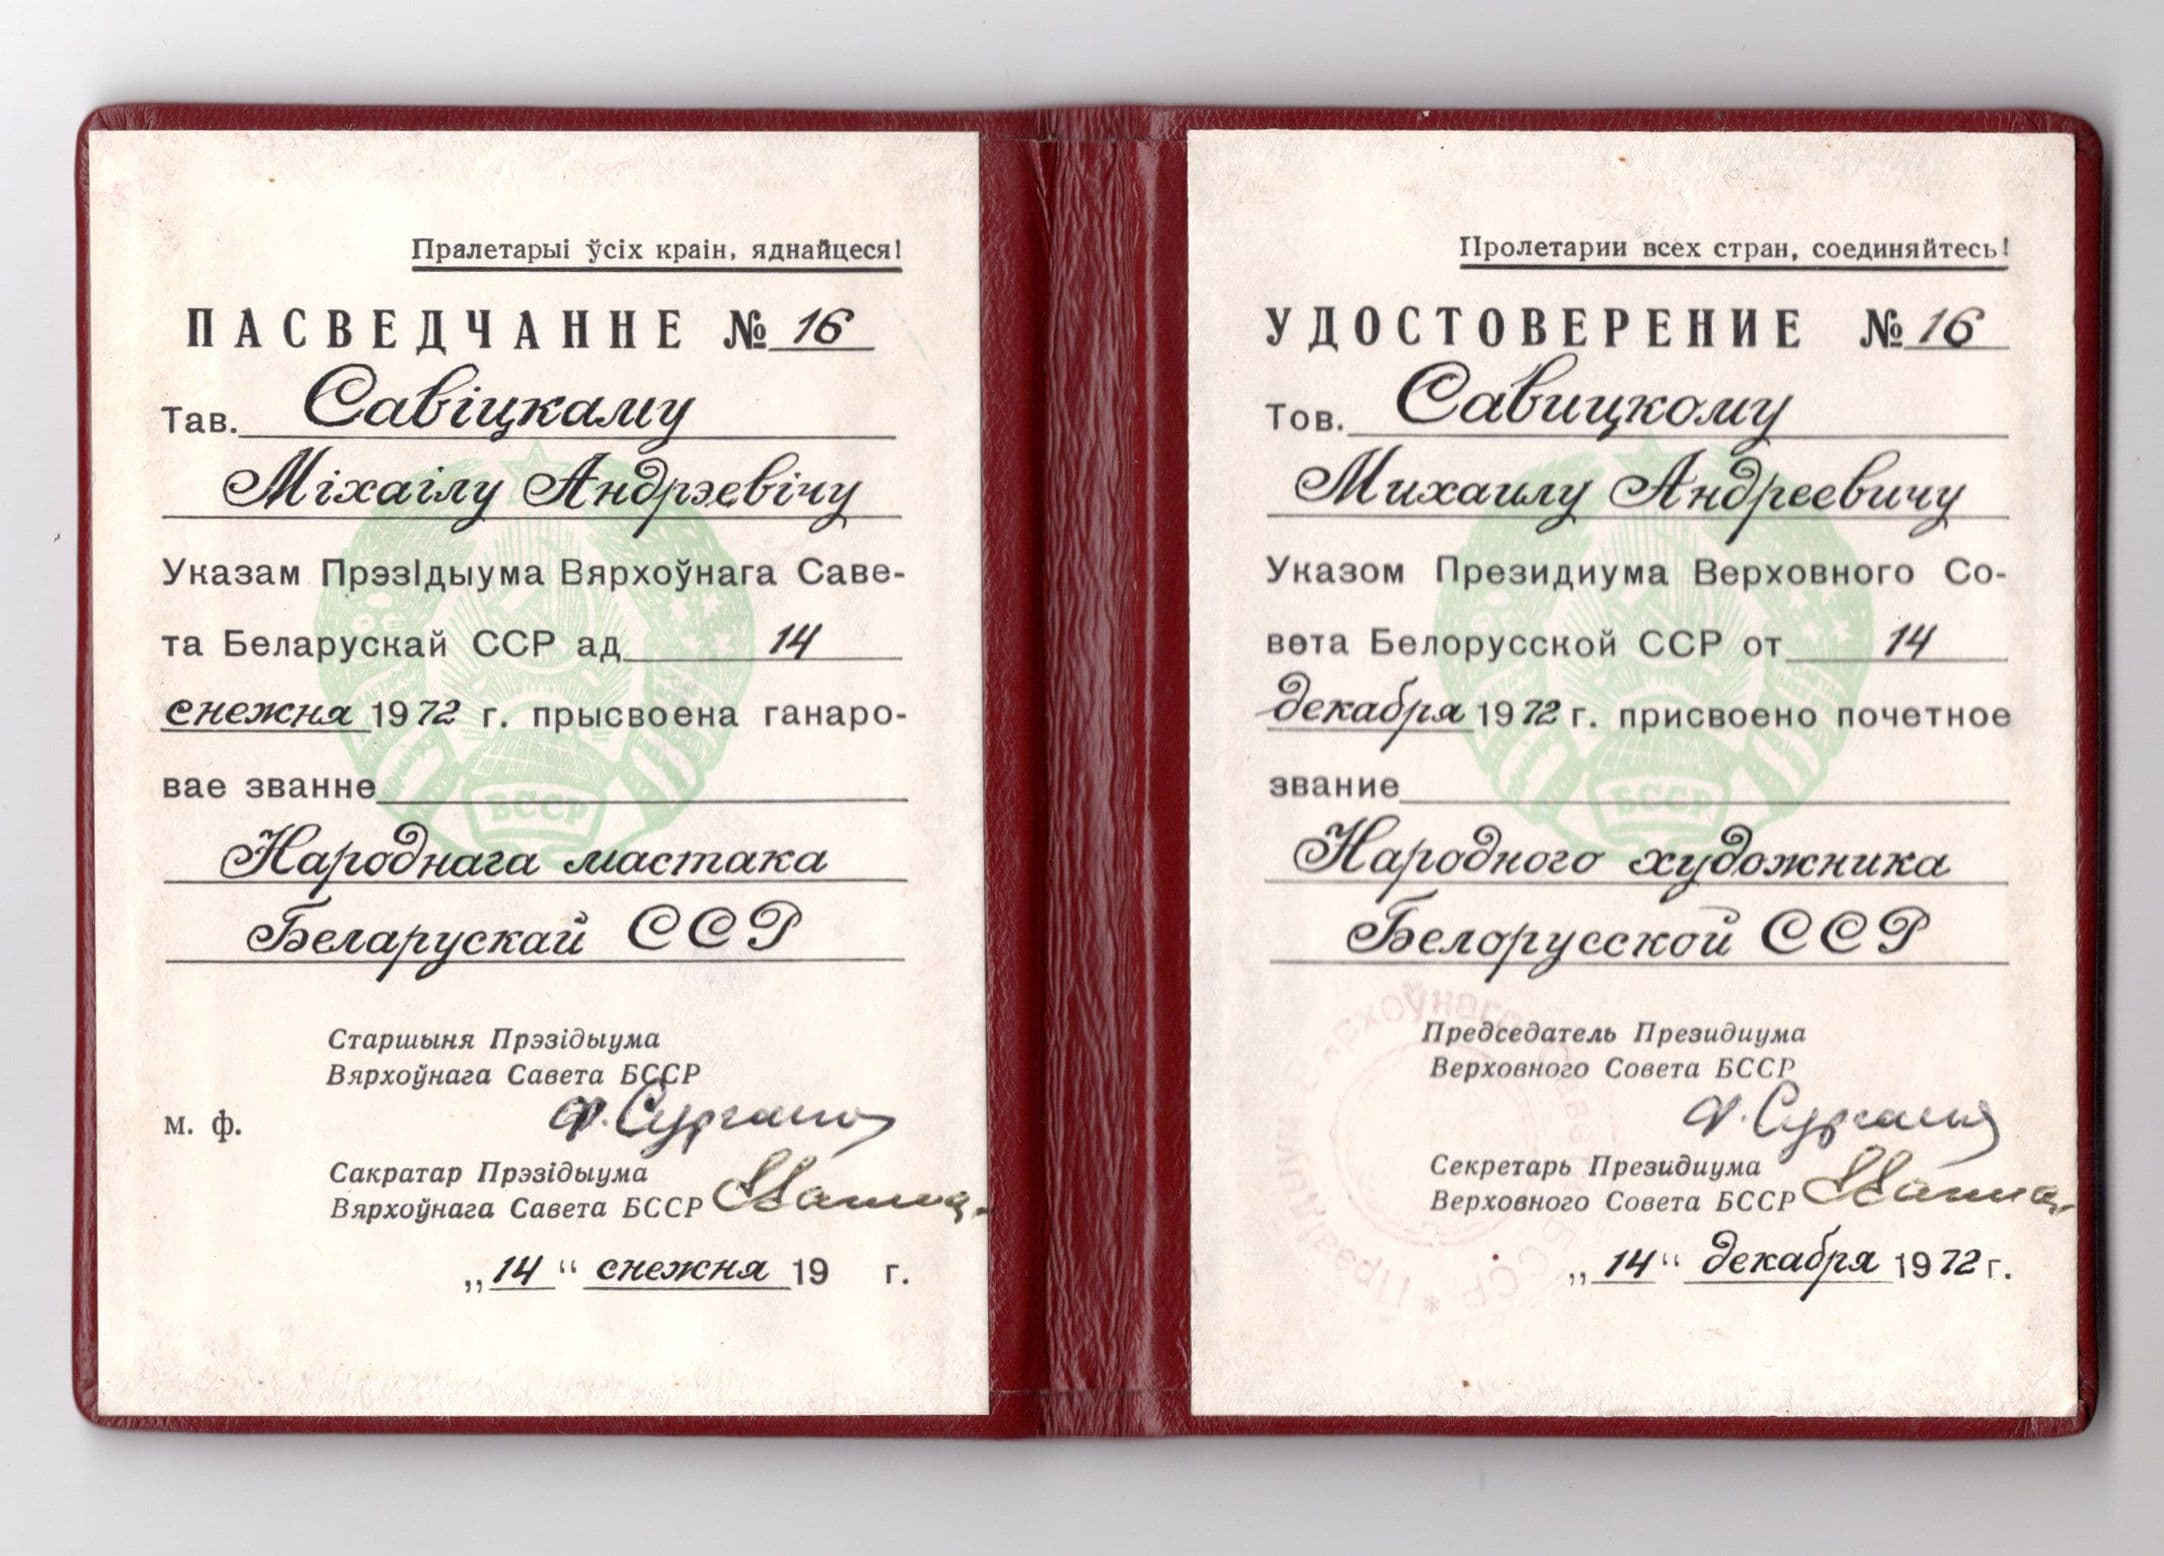 Пралетарыі ўсіх краін, яднайцеся!
ПАСВЕДЧАННЕ № 16
Тав. Савіцкаму
Міхаілу Андрэевічу
Указам Прэзідыума Вярхоўнага Саве-
та Беларускай ССР ад 14
снежня 1972 г. прысвоена ганаро-
вае званне
Народнага мастака
Беларускай ССР
Старшыня Прэзідыума
Вярхоўнага Савета БССР
Ф. Сурганов
м. ф.
Сакратар Прэзідыума
Вярхоўнага Савета БССР
„14“ снежня 19 г.
БССР
Пролетарии всех стран, соединяйтесь!
УДОСТОВЕРЕНИЕ № 16
Тов. Савицкому
Михаилу Андреевичу
Указом Президиума Верховного Со-
вета Белорусской ССР от 14
декабря 1972 г. присвоено почетное
звание
Народного художника
Белорусской ССР
Председатель Президиума
Верховного Совета БССР
Ф. Сурганов
Секретарь Президиума
Верховного Совета БССР
„14“ декабря 1972 г.
БССР